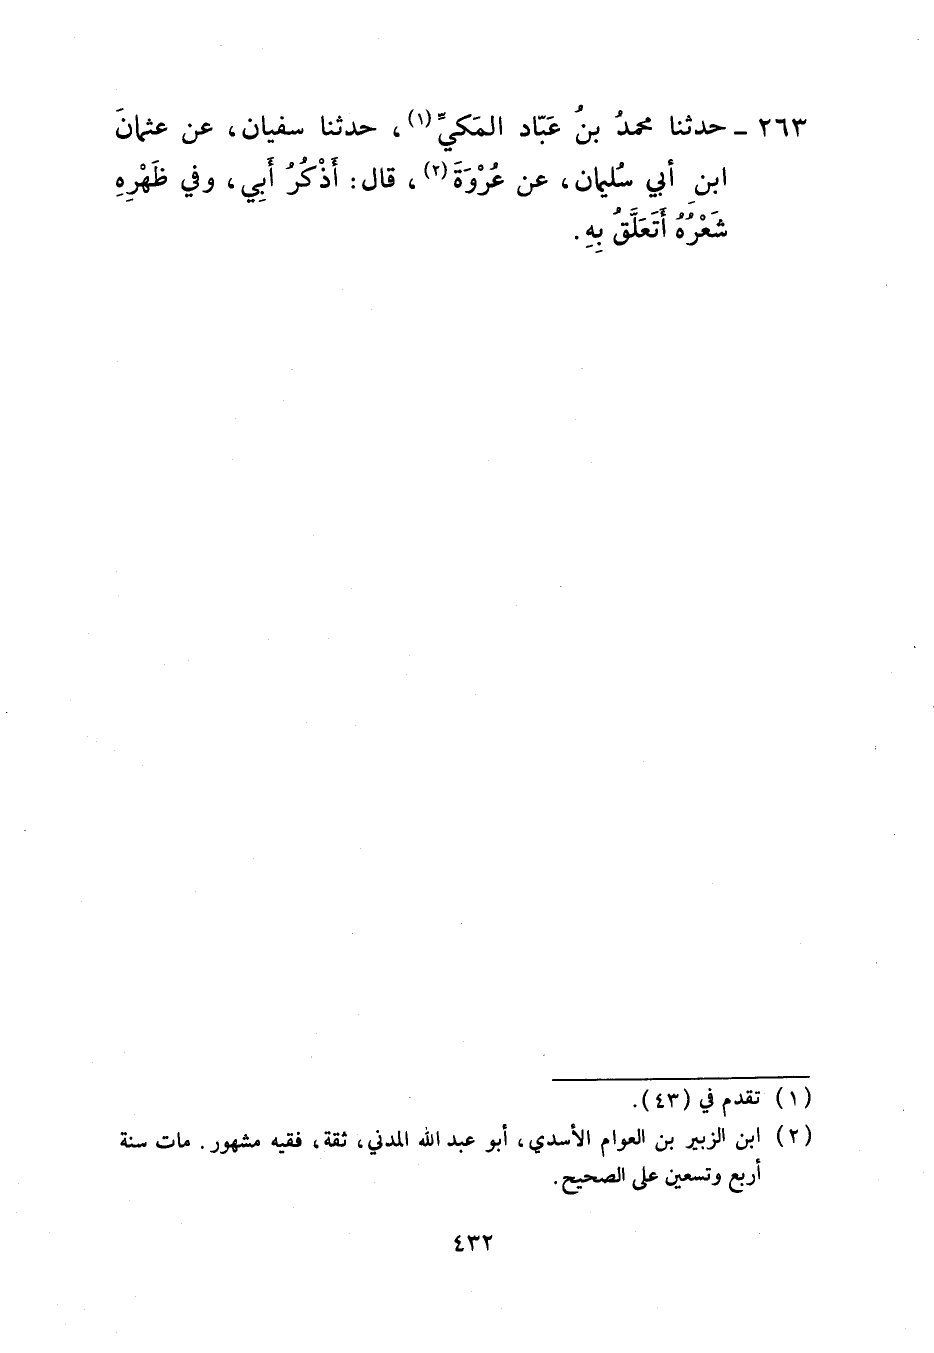 ٢٦٣ ـ حدثنا محمدُ بنُ عَبّاد المَكيِّ(١)، حدثنا سفيان، عن عثمانَ
ابنِ أبي سُليمان، عن عُرْوَةَ(٢)، قال: أَذْكُرُ أَبِي، وفي ظَهْرِهِ
شَعْرُهُ أَتَعَلَّقُ بِهِ.
(١) تقدم في (٤٣).
(٢) ابن الزبير بن العوام الأسدي، أبو عبد الله المدني، ثقة، فقيه مشهور. مات سنة
أربع وتسعين على الصحيح.
٤٣٢